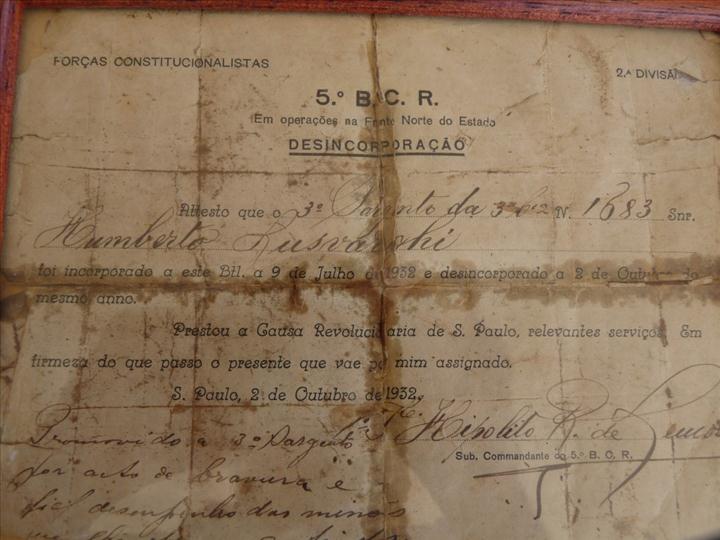 FORÇAS CONSTITUCIONALISTAS
2.ª DIVISÃ
5.º B. C. R.
Em operações na Frente Norte do Estado
DESINCORPORAÇÃO
Attesto que o 3º Sargento da 3ª Cia N. 1683 Snr.
Humberto Lusvarghi
foi incorporado a este Btl. a 9 de Julho de 1932 e desincorporado a 2 de Outubro do
mesmo anno.
Prestou a Causa Revolucionaria de S. Paulo, relevantes serviços. Em
firmeza do que passo o presente que vae por mim assignado.
S. Paulo, 2 de Outubro de 1932.
Hipolito R. de
Sub. Commandante do 5.º B. C. R.
Promovido a 3º Sargento
por acto de bravura e
fiel desempenho das